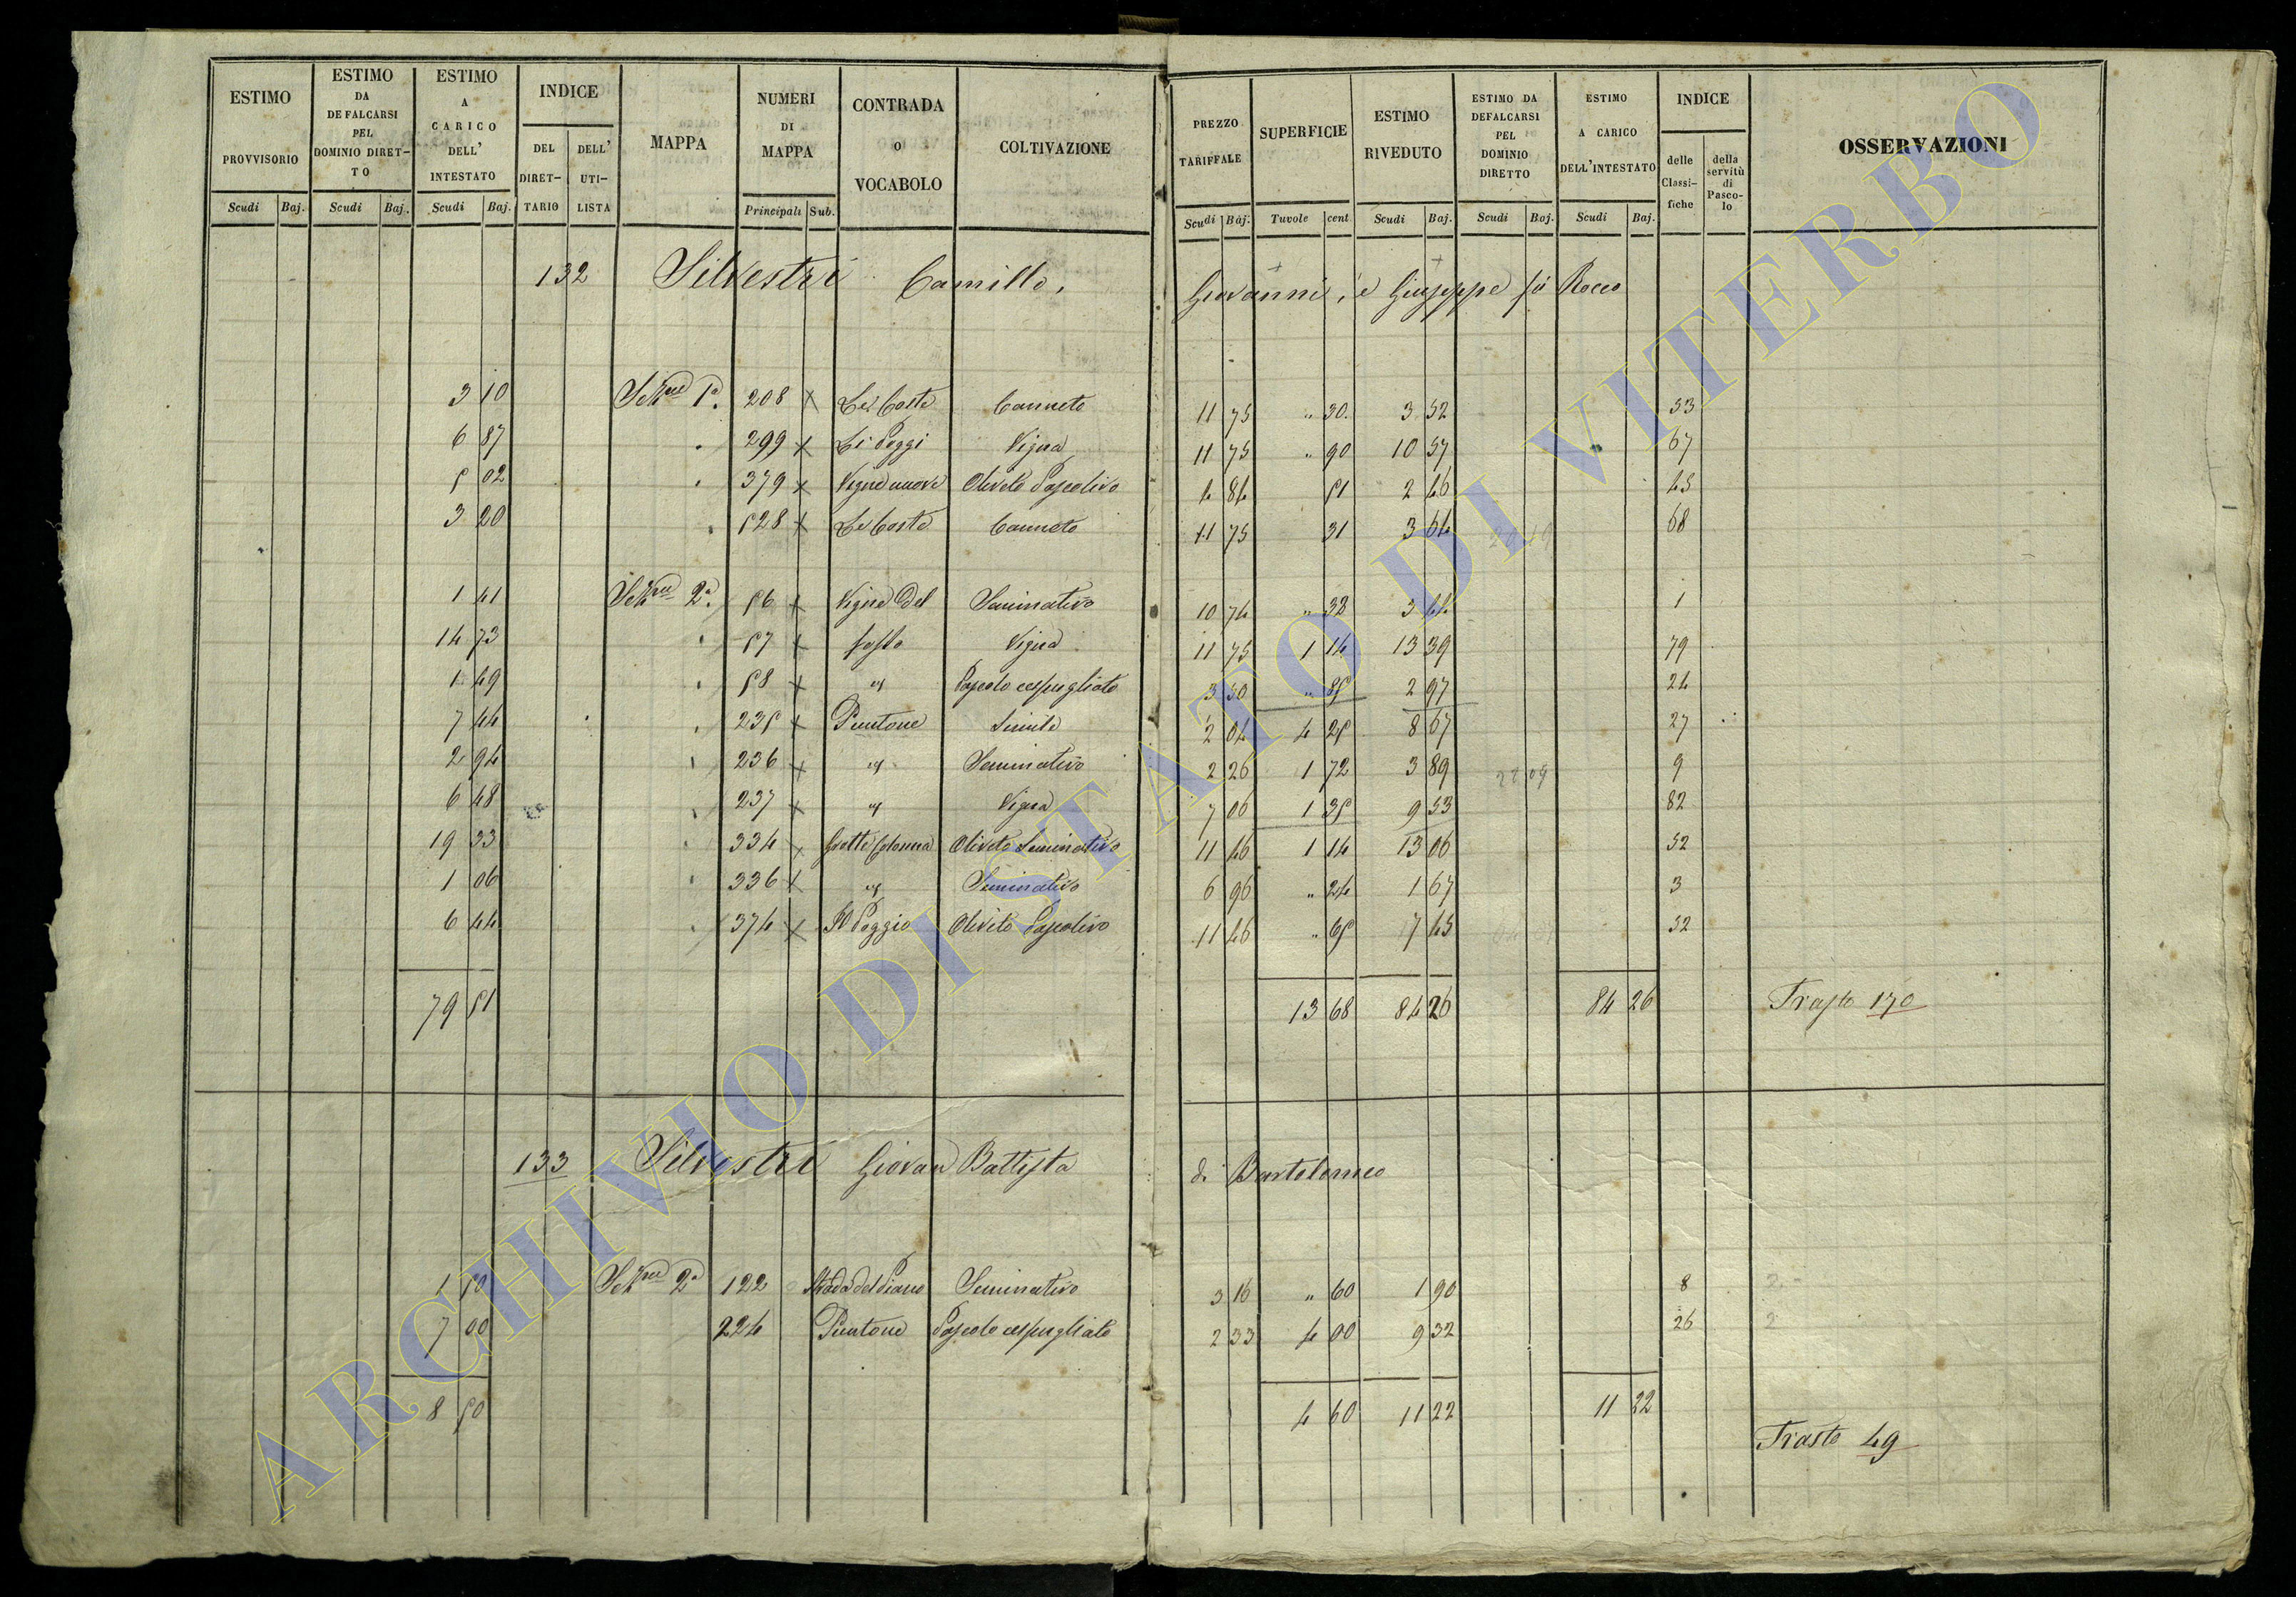 ESTIMO PROVVISORIO | ESTIMO DA DEFALCARSI PEL DOMINIO DIRET-TO | ESTIMO A CARICO DELL' INTESTATO | INDICE DEL DIRET-TARIO | DELL' UTI-LISTA | MAPPA | NUMERI DI MAPPA | CONTRADA O VOCABOLO | COLTIVAZIONE | PREZZO TARIFFALE | SUPERFICIE | ESTIMO RIVEDUTO | ESTIMO DA DEFALCARSI PEL DOMINIO DIRETTO | ESTIMO A CARICO DELL'INTESTATO | INDICE delle Classi-fiche | della servitù di Pasco-lo | OSSERVAZIONI
Scudi Baj. Scudi Baj. Scudi Baj. Principali Sub. Scudi Baj. Tavole cent Scudi Baj. Scudi Baj. Scudi Baj.
132 Silvestri Camillo, Giovanni, e Giuseppe fù Rocco
3 10 Sez.ne 1a. 208 x Le Coste Canneto 11 75 " 30. 3 52 53
6 87 " 299 x Li Poggi Vigna 11 75 " 90 10 57 67
5 02 " 379 x Vigne nuove Oliveto Pascolivo 4 84 51 2 46 45
3 20 " 528 x Le Coste Canneto 11 75 31 3 64 68
1 41 Sez.ne 2a. 56 x Vigne del Seminativo 10 74 " 32 3 44 1
14 73 " 57 x fosso Vigna 11 75 1 14 13 39 79
1 49 " 58 x " Pascolo cespugliato 3 50 " 85 2 97 24
7 44 " 235 x Puntone Simile 2 04 4 25 8 67 27
2 94 " 236 x " Seminativo 2 26 1 72 3 89 22 09 9
6 48 " 237 x " Vigna 7 06 1 35 9 53 82
19 33 " 334 x Grotte Colonna Oliveto Seminativo 11 46 1 14 13 06 52
1 06 " 336 x " Seminativo 6 96 " 24 1 67 3
6 44 " 374 x Il Poggio Oliveto Pascolivo 11 46 " 65 7 45 52
79 51 13 68 84 26 84 26 Trasto 170
133 Silvestri Giovan Battista di Bartolomeo
1 50 Sez.ne 2a 122 Strada del Piano Seminativo 3 16 " 60 1 90 8
7 00 224 Puntone Pascolo cespugliato 2 33 4 00 9 32 26
8 50 4 60 11 22 11 22
Trasto 49
ARCHIVIO DI STATO DI VITERBO